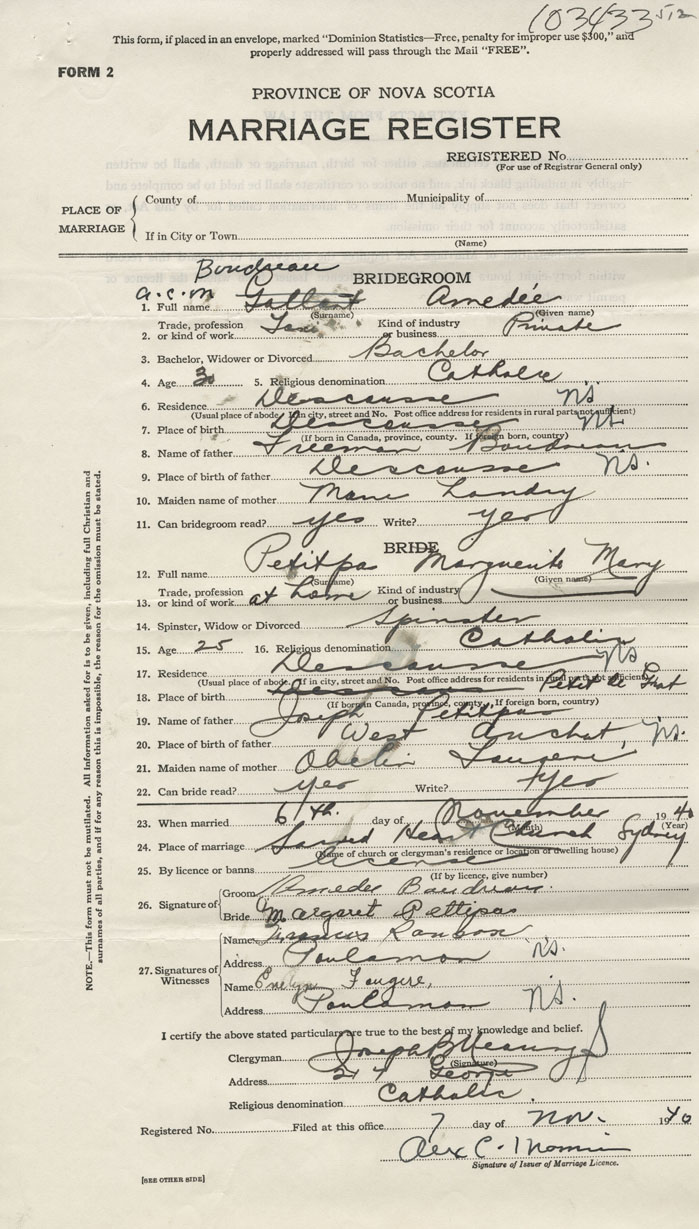 103433 512
This form, if placed in an envelope, marked "Dominion Statistics—Free, penalty for improper use $300," and
properly addressed will pass through the Mail "FREE".
FORM 2
PROVINCE OF NOVA SCOTIA
MARRIAGE REGISTER
REGISTERED No.
(For use of Registrar General only)
PLACE OF MARRIAGE
County of Municipality of
If in City or Town
(Name)
Boudreau
BRIDEGROOM
a.c.m
1. Full name Gallant Amedée
(Surname) (Given name)
2. Trade, profession or kind of work Taxi Kind of industry or business Private
3. Bachelor, Widower or Divorced Bachelor
4. Age 30 5. Religious denomination Catholic
6. Residence Descousse NS
(Usual place of abode. If in city, street and No. Post office address for residents in rural parts not sufficient)
7. Place of birth Descousse NS
(If born in Canada, province, county. If foreign born, country)
8. Name of father Freeman Boudreau
9. Place of birth of father Descousse NS.
10. Maiden name of mother Landry
11. Can bridegroom read? yes Write? yes
BRIDE
12. Full name Petitpas Marguerite Mary
(Surname) (Given name)
13. Trade, profession or kind of work at home Kind of industry or business
14. Spinster, Widow or Divorced Spinster
15. Age 25 16. Religious denomination Catholic
17. Residence Descousse NS
(Usual place of abode. If in city, street and No. Post office address for residents in rural parts not sufficient)
18. Place of birth Descousse Petit de Grat
(If born in Canada, province, county. If foreign born, country)
19. Name of father Joseph Petitpas
20. Place of birth of father West Arichat, NS.
21. Maiden name of mother
22. Can bride read? yes Write? yes
23. When married 6th. day of November 1940
(Month) (Year)
24. Place of marriage Sacred Heart Church Sydney
(Name of church or clergyman's residence or location of dwelling house)
25. By licence or banns license
(If by licence, give number)
26. Signature of
Groom Amedee Boudreau.
Bride Margaret Pettipas
27. Signatures of Witnesses
Name Francis
Address Poulamon NS.
Name Evelyn Fougere,
Address Poulamon NS.
I certify the above stated particulars are true to the best of my knowledge and belief.
Clergyman Joseph B
(Signature)
Address George
Religious denomination Catholic.
Registered No. Filed at this office 7 day of Nov. 1940
Alex C.
Signature of Issuer of Marriage Licence.
[SEE OTHER SIDE]
NOTE.—This form must not be mutilated. All Information asked for is to be given, including full Christian and
surnames of all parties, and if for any reason this is impossible, the reason for the omission must be stated.